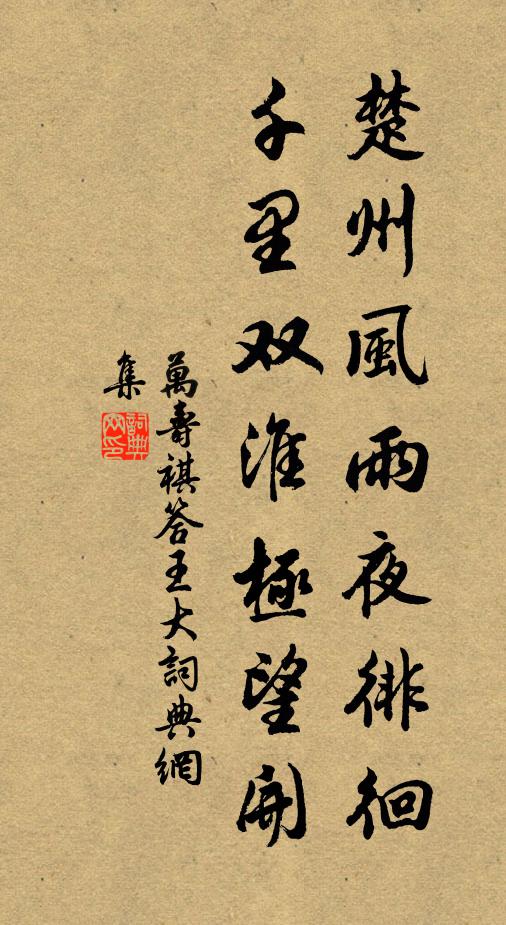 楚州風雨夜徘徊
千里双淮極望開
萬壽祺答王大詞典網
集
詞典網印